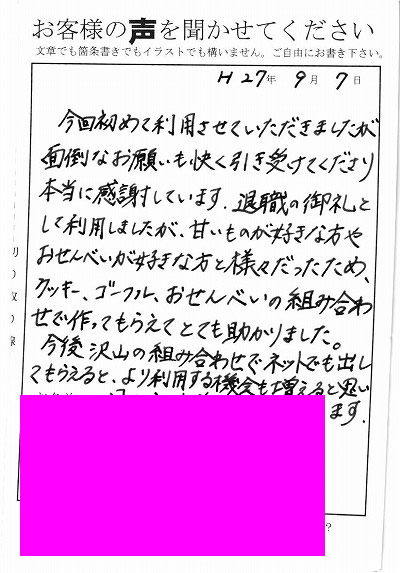 お客様の声を聞かせてください
文章でも箇条書きでもイラストでも構いません。ご自由にお書き下さい。
H 27年 9月 7日
今回初めて利用させていただきましたが
面倒なお願いも快く引き受けてくださり
本当に感謝しています。退職の御礼と
して利用しましたが、甘いものが好きな方や
おせんべいが好きな方と様々だったため、
クッキー、ゴーフル、おせんべいの組み合わ
せで作ってもらえてとても助かりました。
今後沢山の組み合わせでネットでも出し
てもらえると、より利用する機会も増えると思い
ます.
?